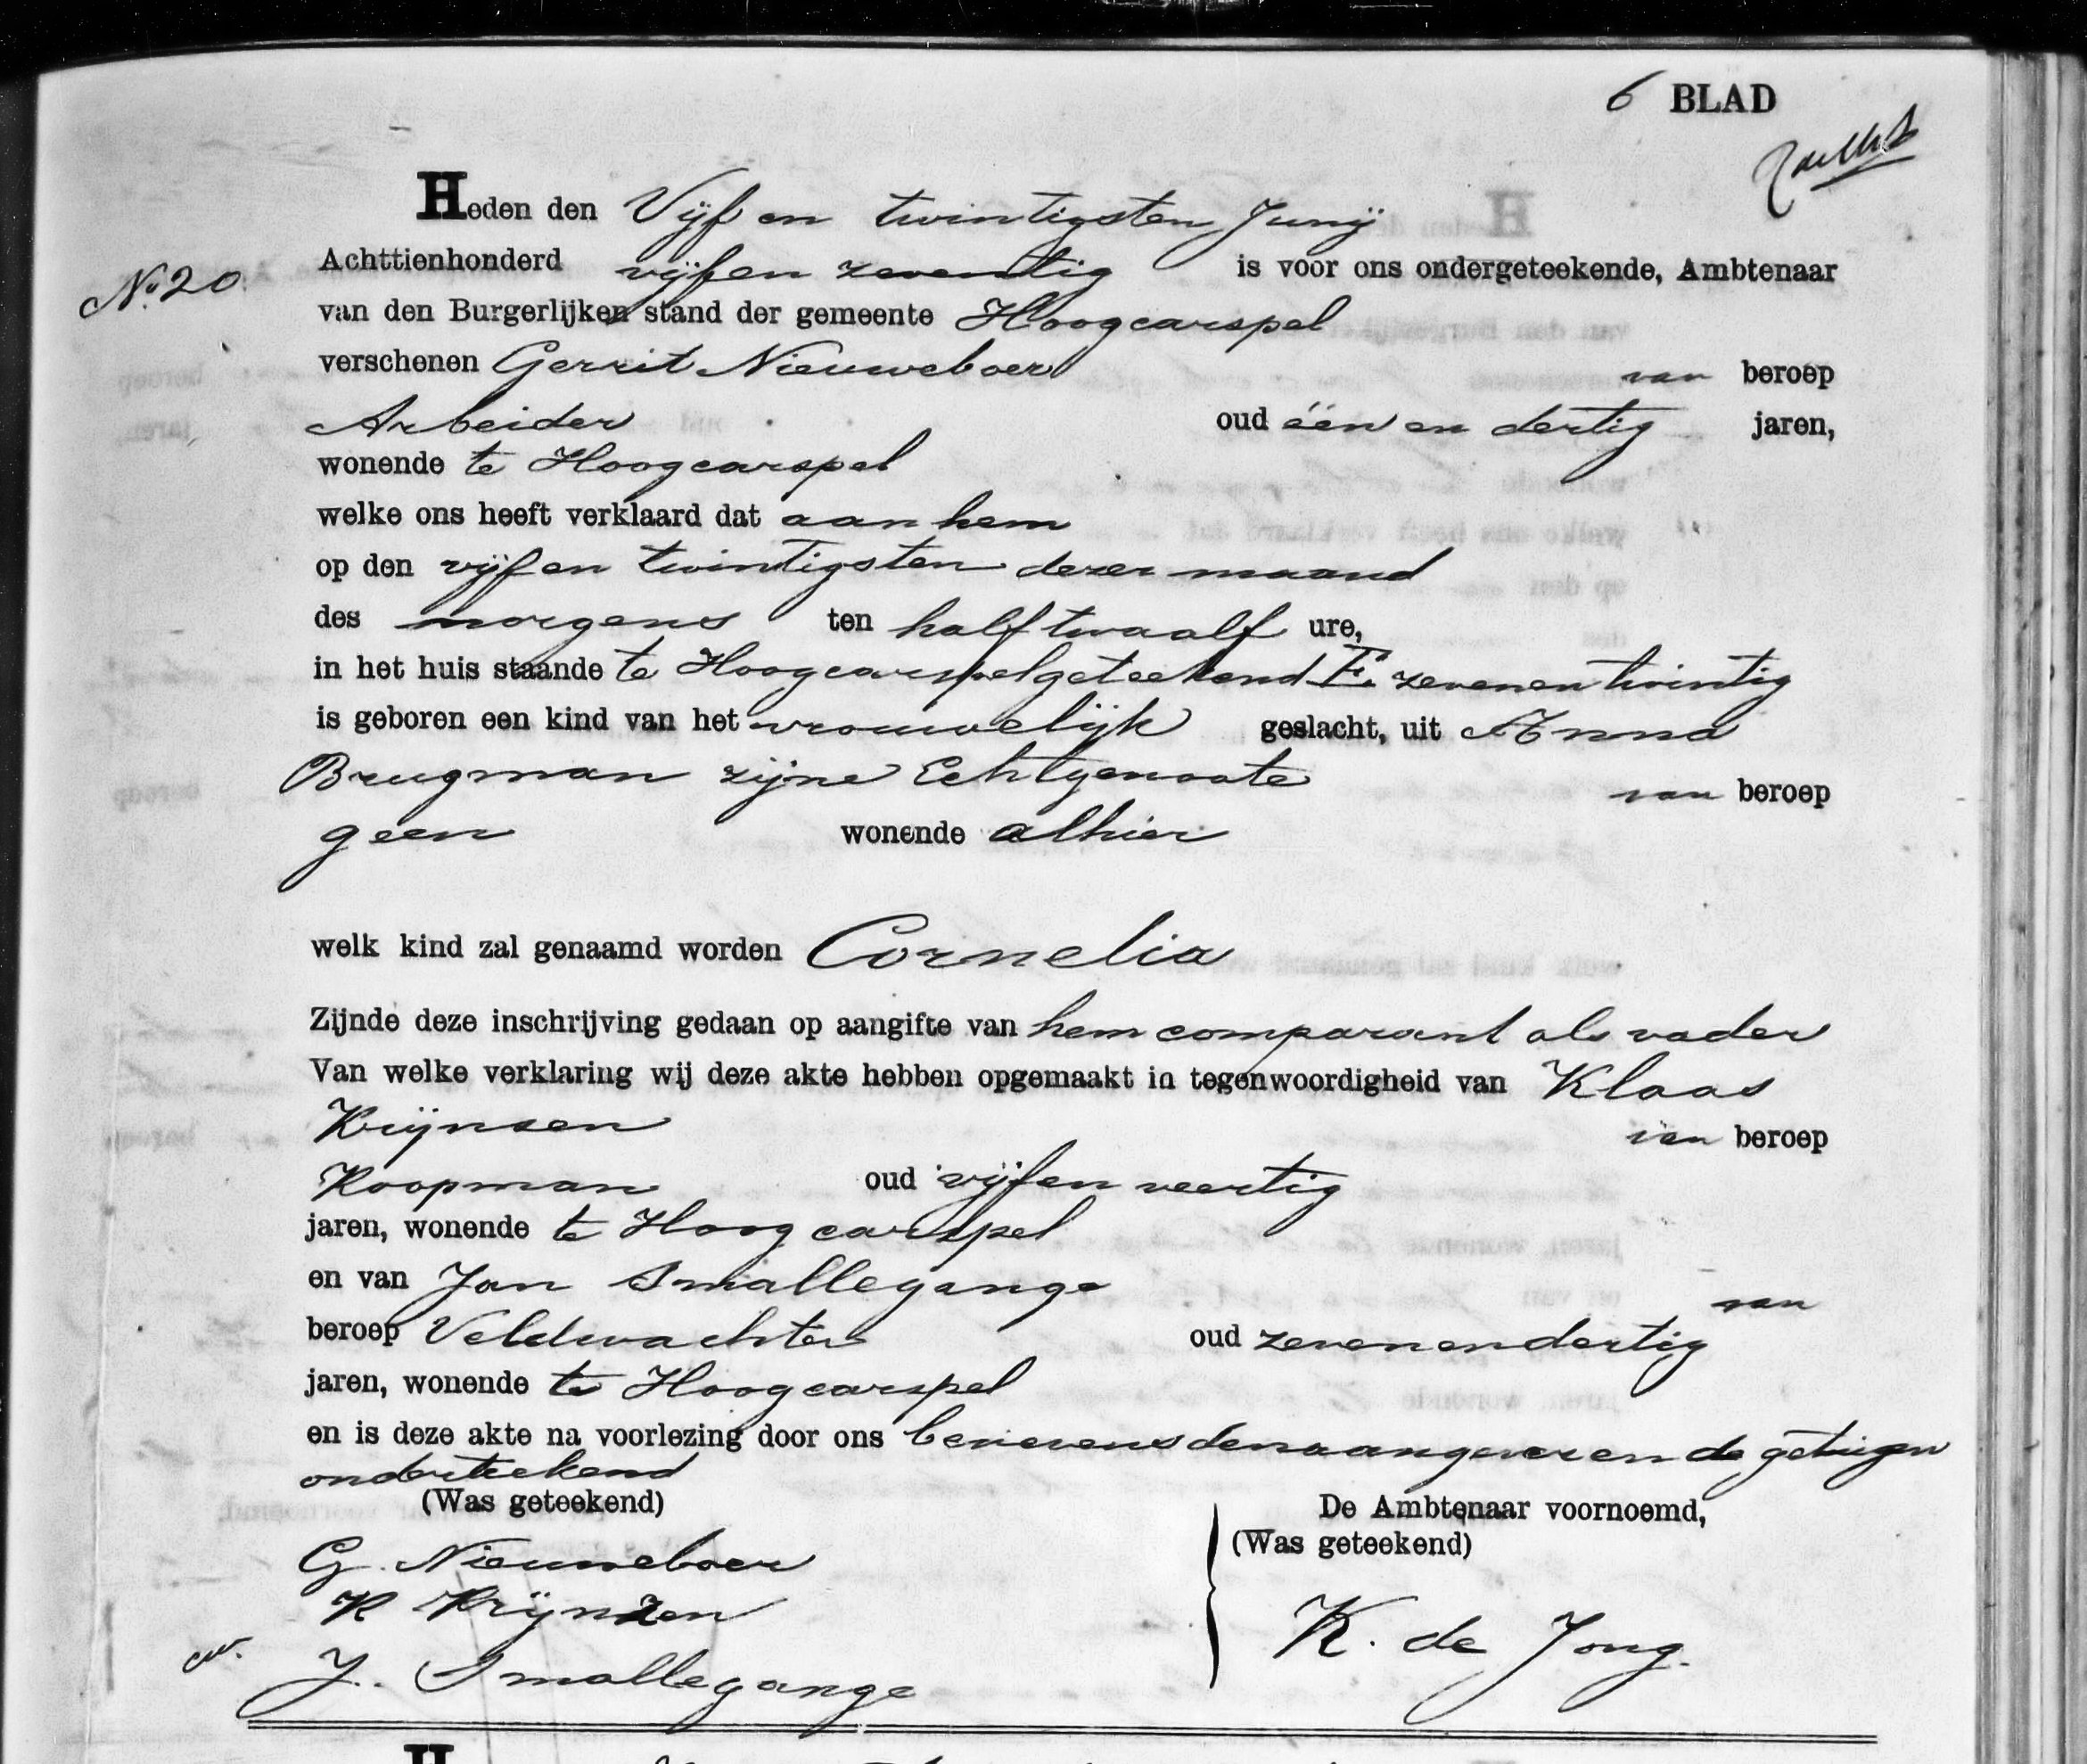 6 BLAD
Heden den Vijf en twintigsten Junij
No. 20
Achttienhonderd vijfen zeventig is voor ons ondergeteekende, Ambtenaar
van den Burgerlijken stand der gemeente Hoogcarspel
verschenen Gerrit Nieuweboer van beroep
Arbeider oud één en dertig jaren,
wonende te Hoogcarspel
welke ons heeft verklaard dat aan hem
op den vijf en twintigsten dezer maand
des morgens ten half twaalf ure,
in het huis staande te Hoogcarspel geteekend E. zevenen twintig
is geboren een kind van het vrouwelijk geslacht, uit Anna
Brugman zijne Echtgenoote van beroep
geen wonende alhier
welk kind zal genaamd worden Cornelia
Zijnde deze inschrijving gedaan op aangifte van hem comparant als vader
Van welke verklaring wij deze akte hebben opgemaakt in tegenwoordigheid van Klaas
Krijnsen van beroep
Koopman oud vijfen veertig
jaren, wonende te Hoogcarspel
en van Jan Smallegange van
beroep Veldwachter oud zevenendertig
jaren, wonende te Hoogcarspel
en is deze akte na voorlezing door ons benevens den aangever en de getuigen
onderteekend
(Was geteekend) De Ambtenaar voornoemd,
(Was geteekend)
G. Nieuweboer
K Krijnzen
K. de Jong.
J. Smallegange